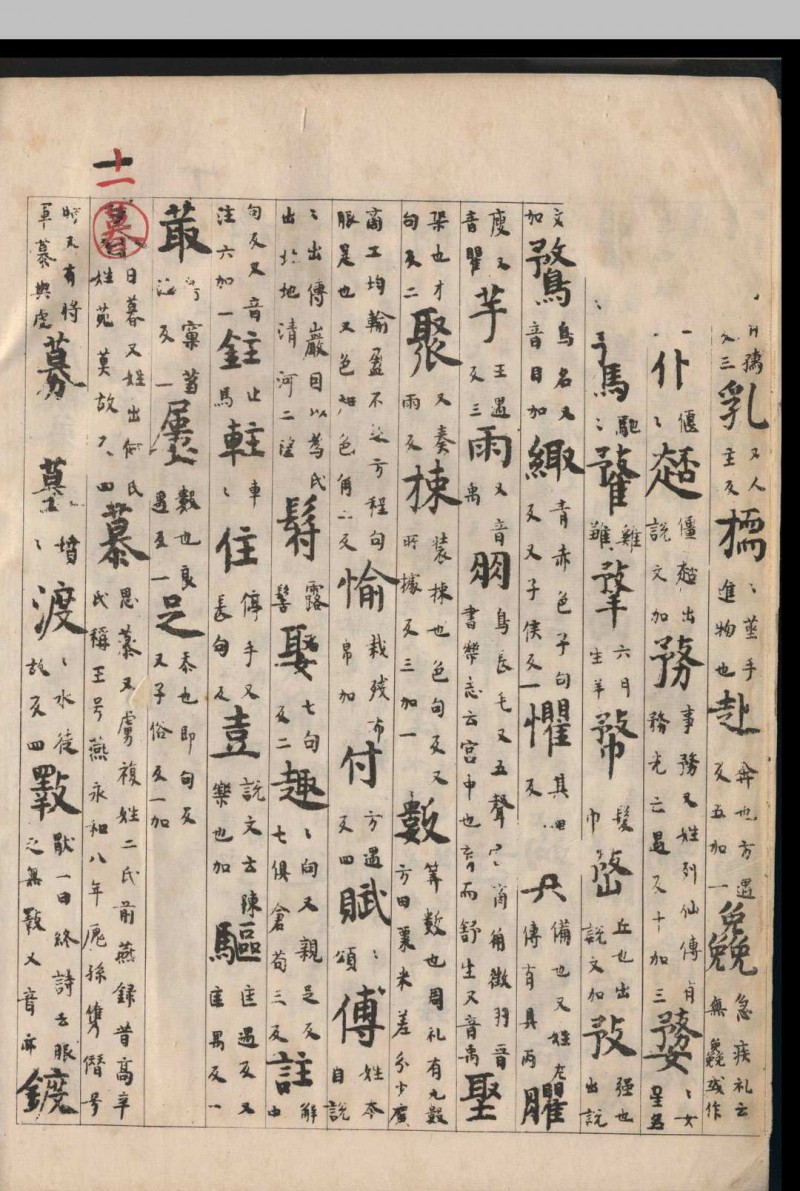 十一
又三乳又人主反擩〻莖手進物也赴奔也方遇反五加一㝹急疾礼云無或作
仆〻偃僵出說文加務事務又姓列仙傳有務光亡遇反十加三婺〻女星名
馳〻雞雛羍六月生羊髮巾丘也出說文加敄强也出說
文加鶩鳥名又音目加緅青赤色子句反又子侯反一懼其反具備也又姓左傳有具丙臞
瘦又音瞿芋王遇反三雨又音禹羽鳥長毛又五聲宮商角徵羽晉書樂志云宮中也舒生又音禹堲
聚也才句反二聚又奏雨反捒裝捒也色句反又所據反三加一數筭數也周礼有九數方田粟米差分少廣
商工均輸盈不足方程句股是也又色色角二反裁殘布帛加付方遇反四賦〻頌傅姓本自說
〻出傅巖因以為氏出北地清河二望露髻娶七句反二趣〻向又親足反七俱倉苟三反註解由
句反又音注六加一鉒止馬軴車〻住停手又長句反壴說文云陳樂也加驅匡遇反又匡禺反一
菆鳥窠芻注反一屢數也良遇反一足添也即句反又子俗反一加
暮日暮又姓出何氏姓苑莫故反四慕思慕又虜複姓二氏前燕録昔高辛氏稱王号燕永和八年廆孫儁僭号
時又有將軍慕輿虔募墓〻墳渡〻水徒故反四斁猒一曰終詩云服之無斁又音亦鍍